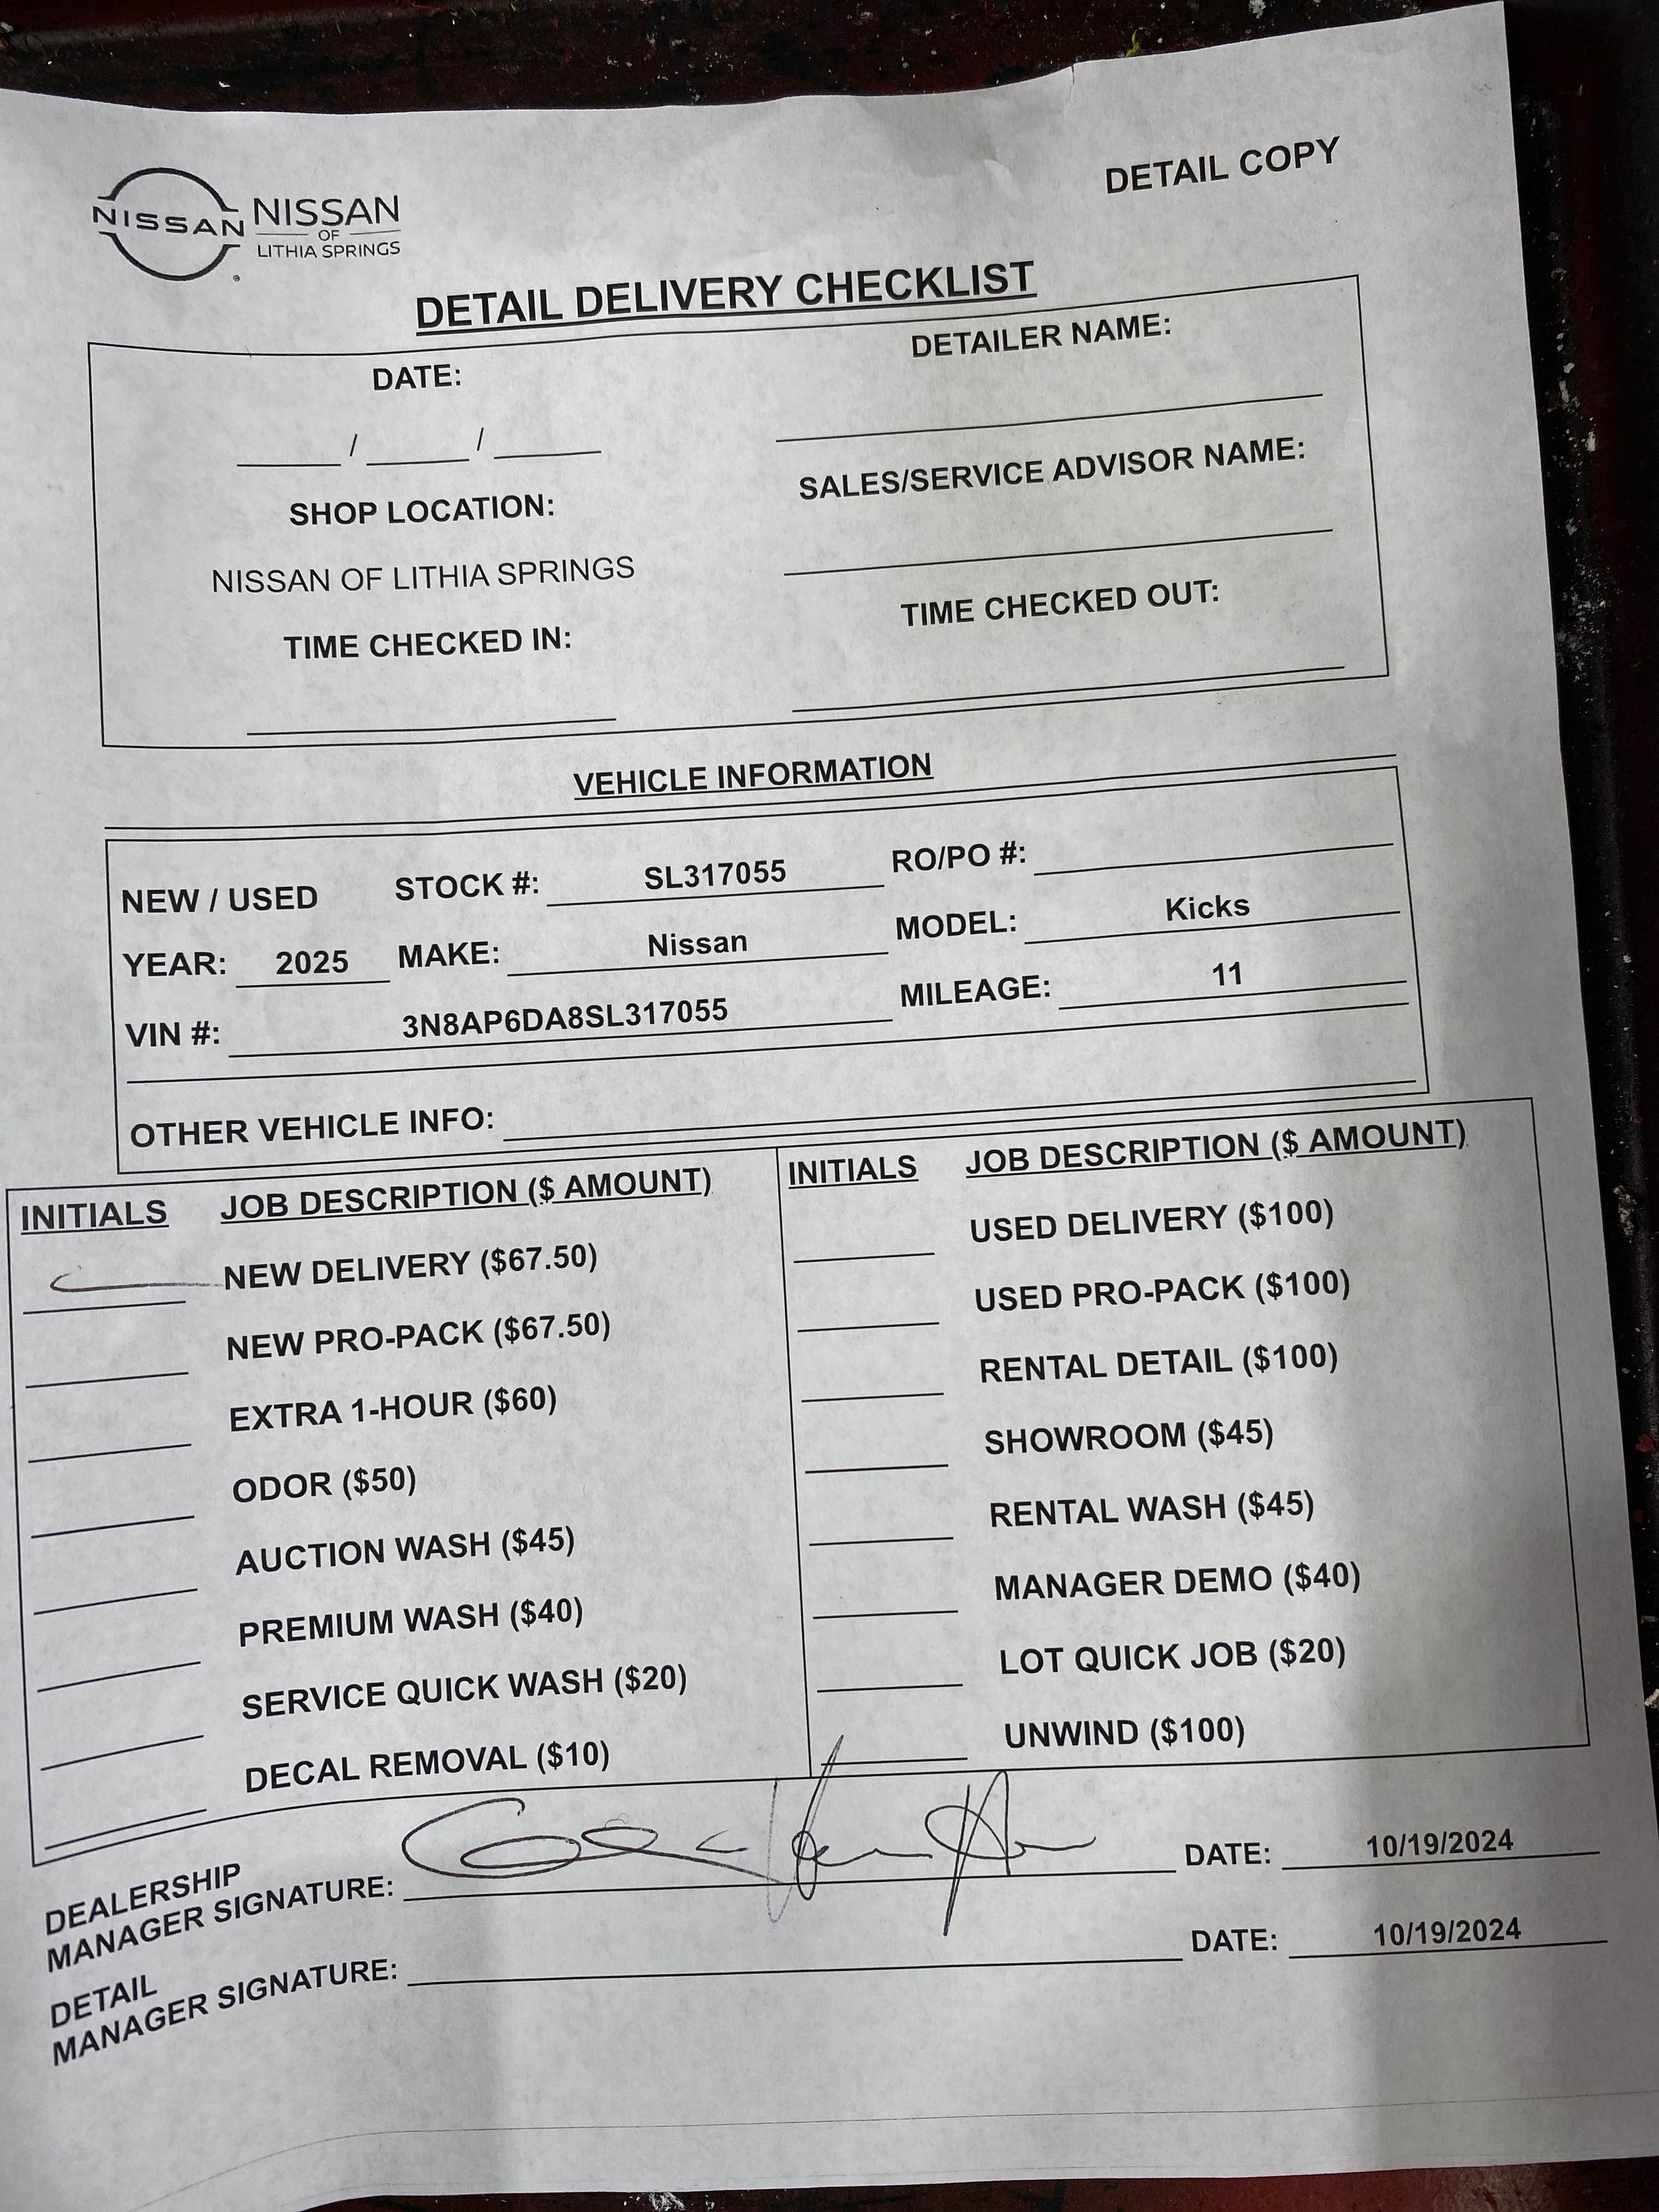 DETAIL COPY
NISSAN NISSAN
OF
LITHIA SPRINGS
DETAIL DELIVERY CHECKLIST
DATE:
DETAILER NAME:
____ / ____ / ____
SALES/SERVICE ADVISOR NAME:
SHOP LOCATION:
NISSAN OF LITHIA SPRINGS
TIME CHECKED OUT:
TIME CHECKED IN:
VEHICLE INFORMATION
NEW / USED STOCK #: SL317055 RO/PO #:
YEAR: 2025 MAKE: Nissan MODEL: Kicks
VIN #: 3N8AP6DA8SL317055 MILEAGE: 11
OTHER VEHICLE INFO:
INITIALS JOB DESCRIPTION ($ AMOUNT)
NEW DELIVERY ($67.50)
NEW PRO-PACK ($67.50)
EXTRA 1-HOUR ($60)
ODOR ($50)
AUCTION WASH ($45)
PREMIUM WASH ($40)
SERVICE QUICK WASH ($20)
DECAL REMOVAL ($10)
INITIALS JOB DESCRIPTION ($ AMOUNT)
USED DELIVERY ($100)
USED PRO-PACK ($100)
RENTAL DETAIL ($100)
SHOWROOM ($45)
RENTAL WASH ($45)
MANAGER DEMO ($40)
LOT QUICK JOB ($20)
UNWIND ($100)
DEALERSHIP
MANAGER SIGNATURE: DATE: 10/19/2024
DETAIL
MANAGER SIGNATURE: DATE: 10/19/2024